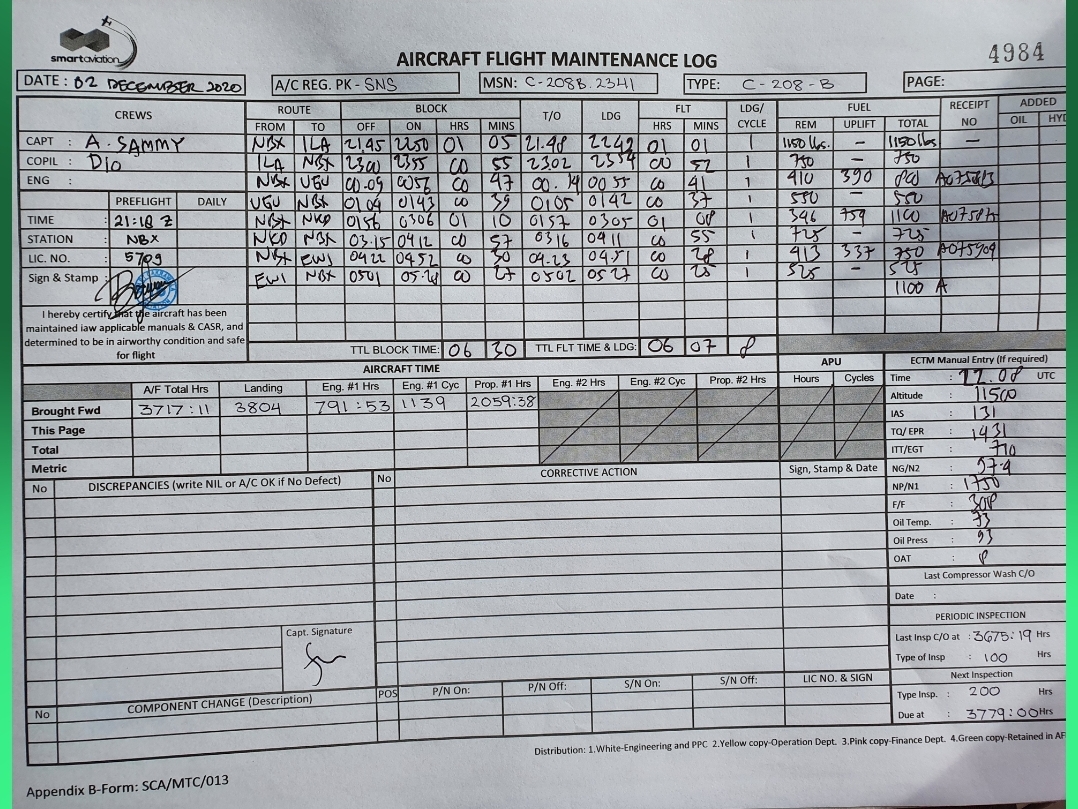 smartaviation
AIRCRAFT FLIGHT MAINTENANCE LOG
4984
DATE : 02 DECEMBER 2020 A/C REG. PK - SNS MSN: C-208B.2341 TYPE: C - 208 - B PAGE:
CREWS ROUTE BLOCK T/O LDG FLT LDG/ CYCLE FUEL RECEIPT NO ADDED
FROM TO OFF ON HRS MINS HRS MINS REM UPLIFT TOTAL OIL HY
CAPT : A. SAMMY NBX ILA 21.45 2250 01 05 21.48 2249 01 01 1 1150 lbs. – 1150 lbs –
COPIL : Dio ILA NBX 2300 2355 00 55 2302 2354 00 52 1 750 – 750
ENG : NBX UGU 00.09 0056 00 47 00.14 0055 00 41 1 410 390 800
PREFLIGHT DAILY UGU NBX 0104 0143 00 39 0105 0142 00 37 1 550 – 550
TIME : 21:18 Z NBX NKD 0156 0306 01 10 0157 0305 01 08 1 346 754 1100
STATION : NBX NKD NBX 03.15 0412 00 57 0316 0411 00 55 1 725 – 725
LIC. NO. : 5709 NBX EWI 0422 0452 00 30 04.23 04.51 00 28 1 413 337 750 A075909
Sign & Stamp : EWI NBX 0501 05.28 00 27 0502 0527 00 25 1 525 – 525
1100 A
I hereby certify that the aircraft has been
maintained iaw applicable manuals & CASR, and
determined to be in airworthy condition and safe
for flight
TTL BLOCK TIME: 06 30 TTL FLT TIME & LDG: 06 07 8
AIRCRAFT TIME APU ECTM Manual Entry (If required)
A/F Total Hrs Landing Eng. #1 Hrs Eng. #1 Cyc Prop. #1 Hrs Eng. #2 Hrs Eng. #2 Cyc Prop. #2 Hrs Hours Cycles
Brought Fwd 3717:11 3804 791:53 1139 2059:38
This Page
Total
Metric
Time : 22.08 UTC
Altitude : 11500
IAS : 131
TQ/ EPR : 1431
ITT/EGT : 710
NG/N2 : 97.9
NP/N1 : 1750
F/F : 308
Oil Temp. : 73
Oil Press : 93
OAT : 8
Last Compressor Wash C/O
Date :
PERIODIC INSPECTION
Last Insp C/O at : 3675:19 Hrs
Type of Insp : 100 Hrs
Next Inspection
Type Insp. : 200 Hrs
Due at : 3779:00 Hrs
No DISCREPANCIES (write NIL or A/C OK if No Defect) No CORRECTIVE ACTION Sign, Stamp & Date
Capt. Signature
No COMPONENT CHANGE (Description) POS P/N On: P/N Off: S/N On: S/N Off: LIC NO. & SIGN
Distribution: 1.White-Engineering and PPC 2.Yellow copy-Operation Dept. 3.Pink copy-Finance Dept. 4.Green copy-Retained in AF
Appendix B-Form: SCA/MTC/013